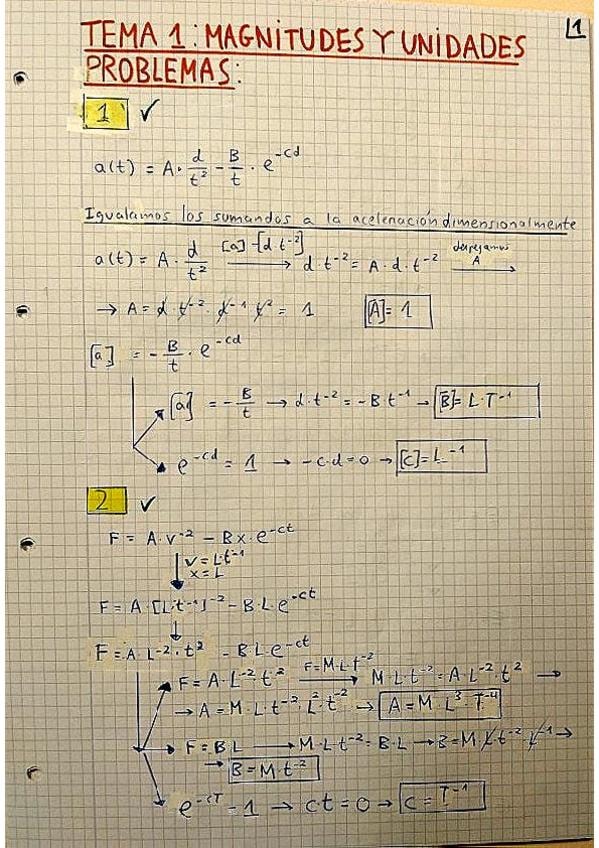 1
TEMA 1: MAGNITUDES Y UNIDADES
PROBLEMAS:
1 ✓
a(t) = A · d/t² - B/t · e^-cd
Igualamos los sumandos a la aceleración dimensionalmente
a(t) = A · d/t² [a]-[d t^-2] → d·t^-2 = A·d·t^-2 despejamos A →
→ A = d t^-2 · d^-1 t^2 = 1 [A] = 1
[a] = - B/t · e^-cd
[a] = - B/t → d·t^-2 = -B t^-1 → [B] = L·T^-1
e^-cd = 1 → -c·d=0 → [c]=L^-1
2 ✓
F = A·v^-2 - Bx·e^-ct
v = L·t^-1
x = L
F = A·[L·t^-1]^-2 - B·L·e^-ct
F = A L^-2·t² - B·L e^-ct
F = A·L^-2·t² F=M·L·t^-2 → M·L·t^-2 = A·L^-2·t² →
→ A = M·L·t^-2·L²·t^-2 → A = M·L³·T^-4
F = B·L → M·L·t^-2 = B·L → B = M·L·t^-2·L^-1 →
→ B = M·t^-2
e^-cT - 1 → c·t = 0 → c = T^-1